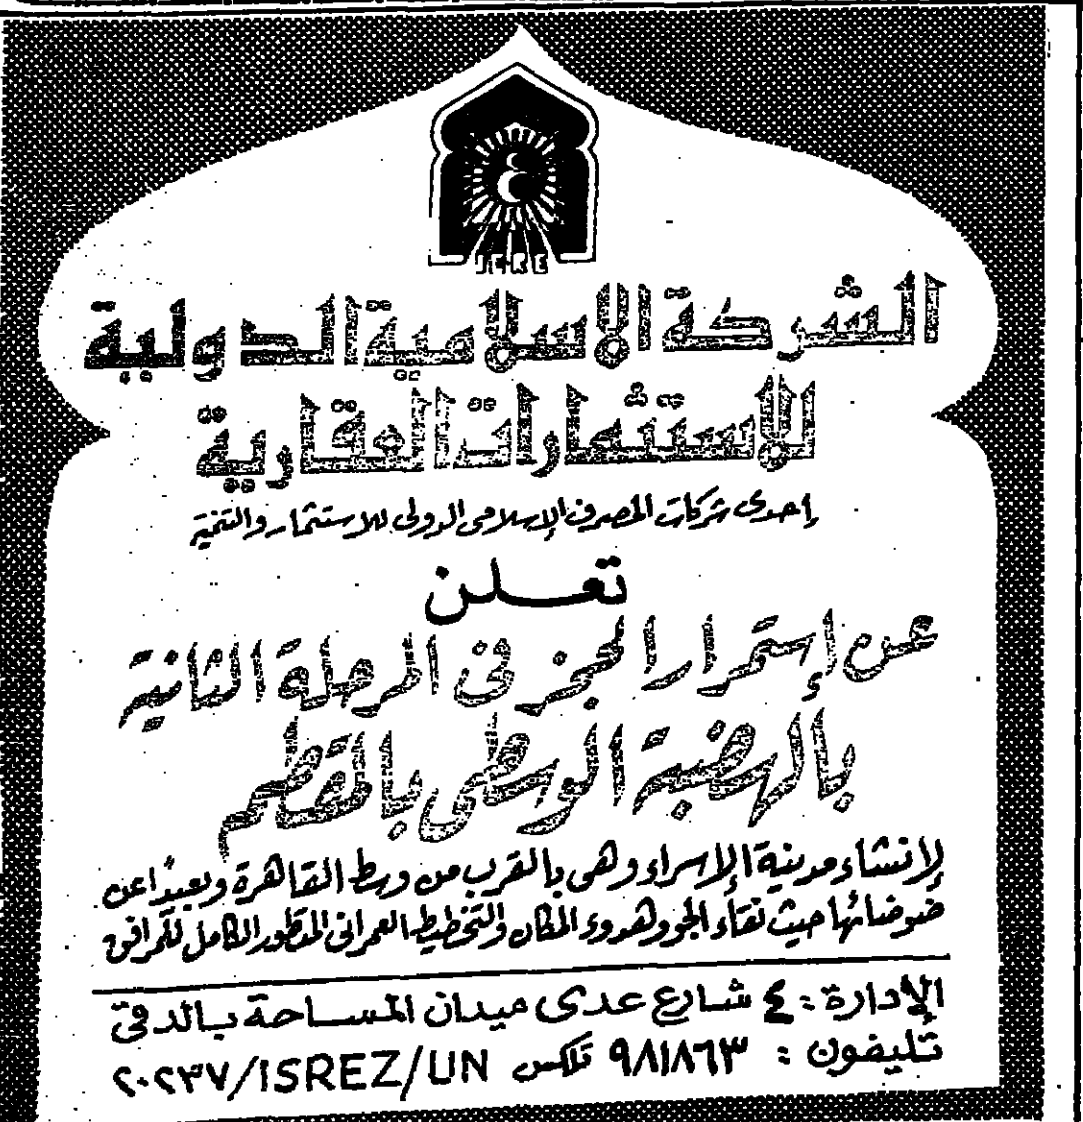 الشركة الإسلامية الدولية
للإستثمارات العقارية
إحدى شركات المصرف الإسلامى الدولى للاستثمار والتنمية
تعلن
عن إستمرار الحجز فى المرحلة الثانية
بالهضبة الوسطى بالمقطم
لإنشاء مدينة الإسراء وهى بالقرب من وسط القاهرة وبعيداً عن
ضوضائها حيث نقاء الجو وهدوء المكان والتخطيط العمرانى المتطور الكامل للمرافق
الإدارة : ٤ شارع عدى ميدان المساحة بالدقى
تليفون : ٩٨١٨٦٣ تلكس ٢٠٢٣٧/ISREZ/UN